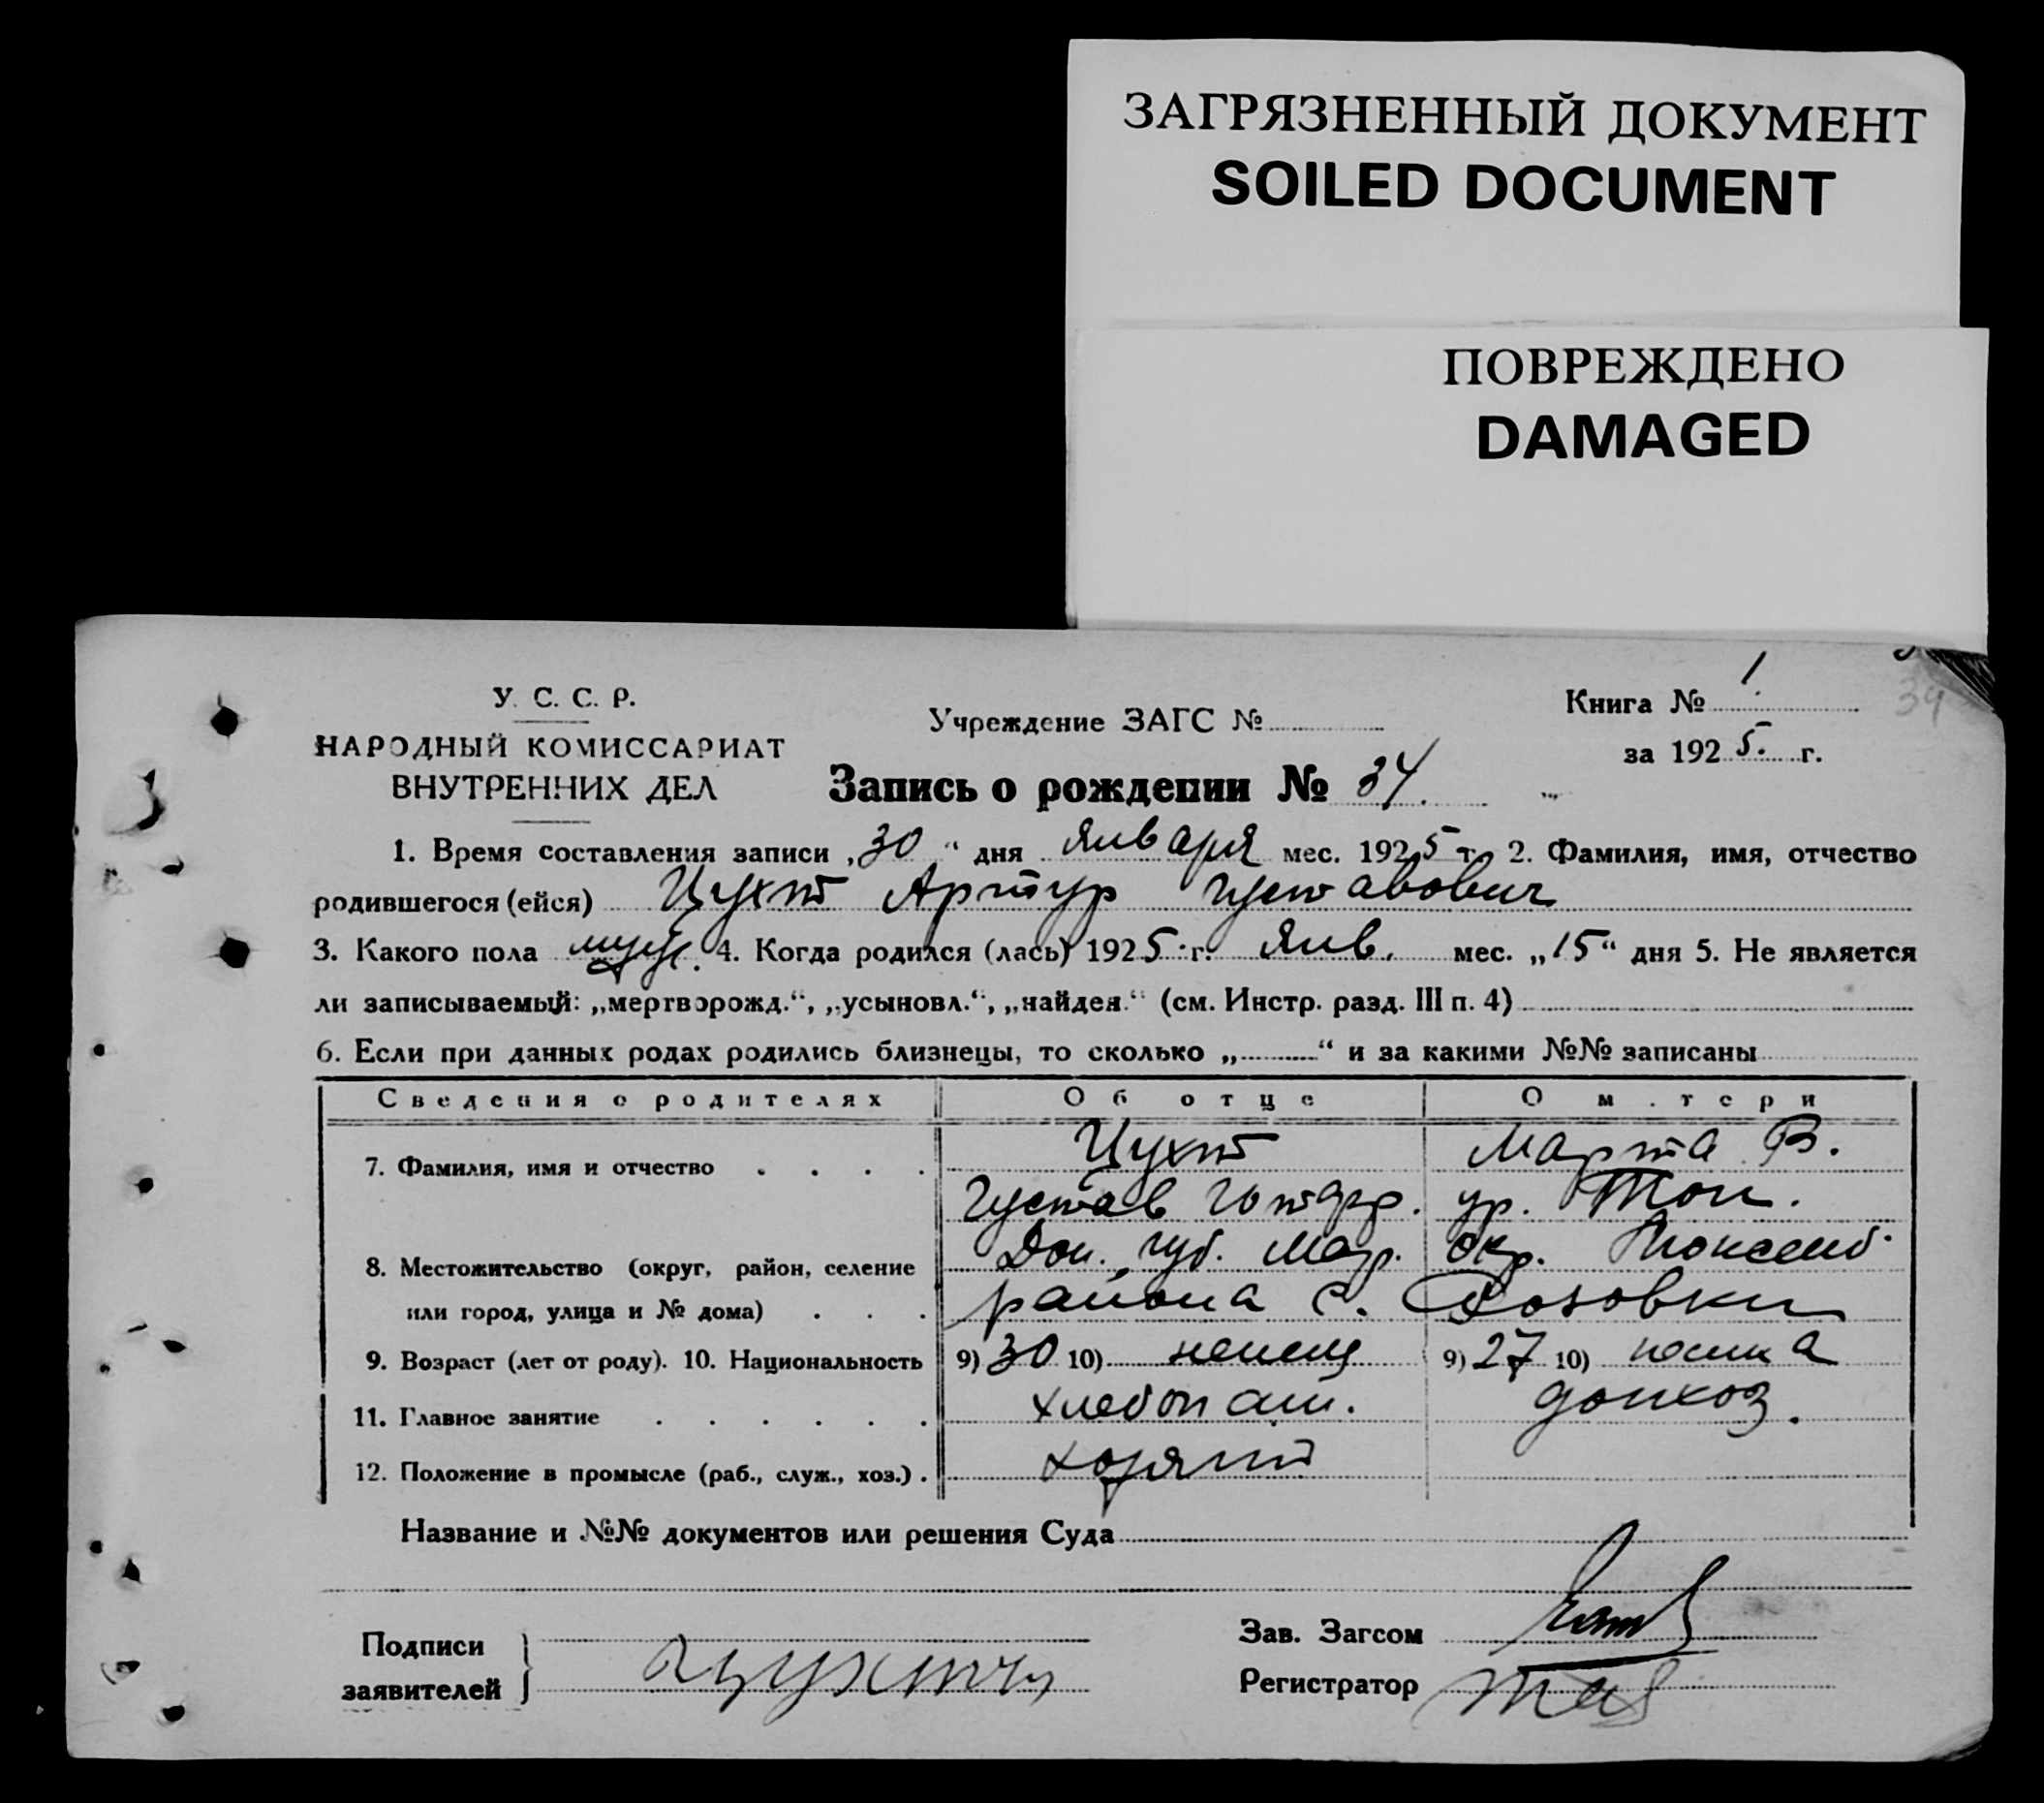 ЗАГРЯЗНЕННЫЙ ДОКУМЕНТ
SOILED DOCUMENT
ПОВРЕЖДЕНО
DAMAGED
34
У. С. С. Р.
НАРОДНЫЙ КОМИССАРИАТ
ВНУТРЕННИХ ДЕЛ
Учреждение ЗАГС №
Книга № 1.
за 1925. г.
Запись о рождении № 34.
1. Время составления записи „30“ дня Января мес. 1925 г. 2. Фамилия, имя, отчество
родившегося (ейся) Цухт Артур Густавович
3. Какого пола муж. 4. Когда родился (лась) 1925 г. Янв. мес. „15“ дня 5. Не является
ли записываемый: „мертворожд.“, „усыновл.“, „найден.“ (см. Инстр. разд. III п. 4)
6. Если при данных родах родились близнецы, то сколько „ “ и за какими №№ записаны
Сведения о родителях Об отце О матери
7. Фамилия, имя и отчество Цухт Марта В.
Густав Готфр. ур.
8. Местожительство (округ, район, селение Дон. губ. Мар. окр.
или город, улица и № дома) района с. Розовки
9. Возраст (лет от роду). 10. Национальность 9) 30 10) немец 9) 27 10) немка
11. Главное занятие хлебопаш. домхоз.
12. Положение в промысле (раб., служ., хоз.)
Название и №№ документов или решения Суда
Подписи
заявителей
Зав. Загсом
Регистратор